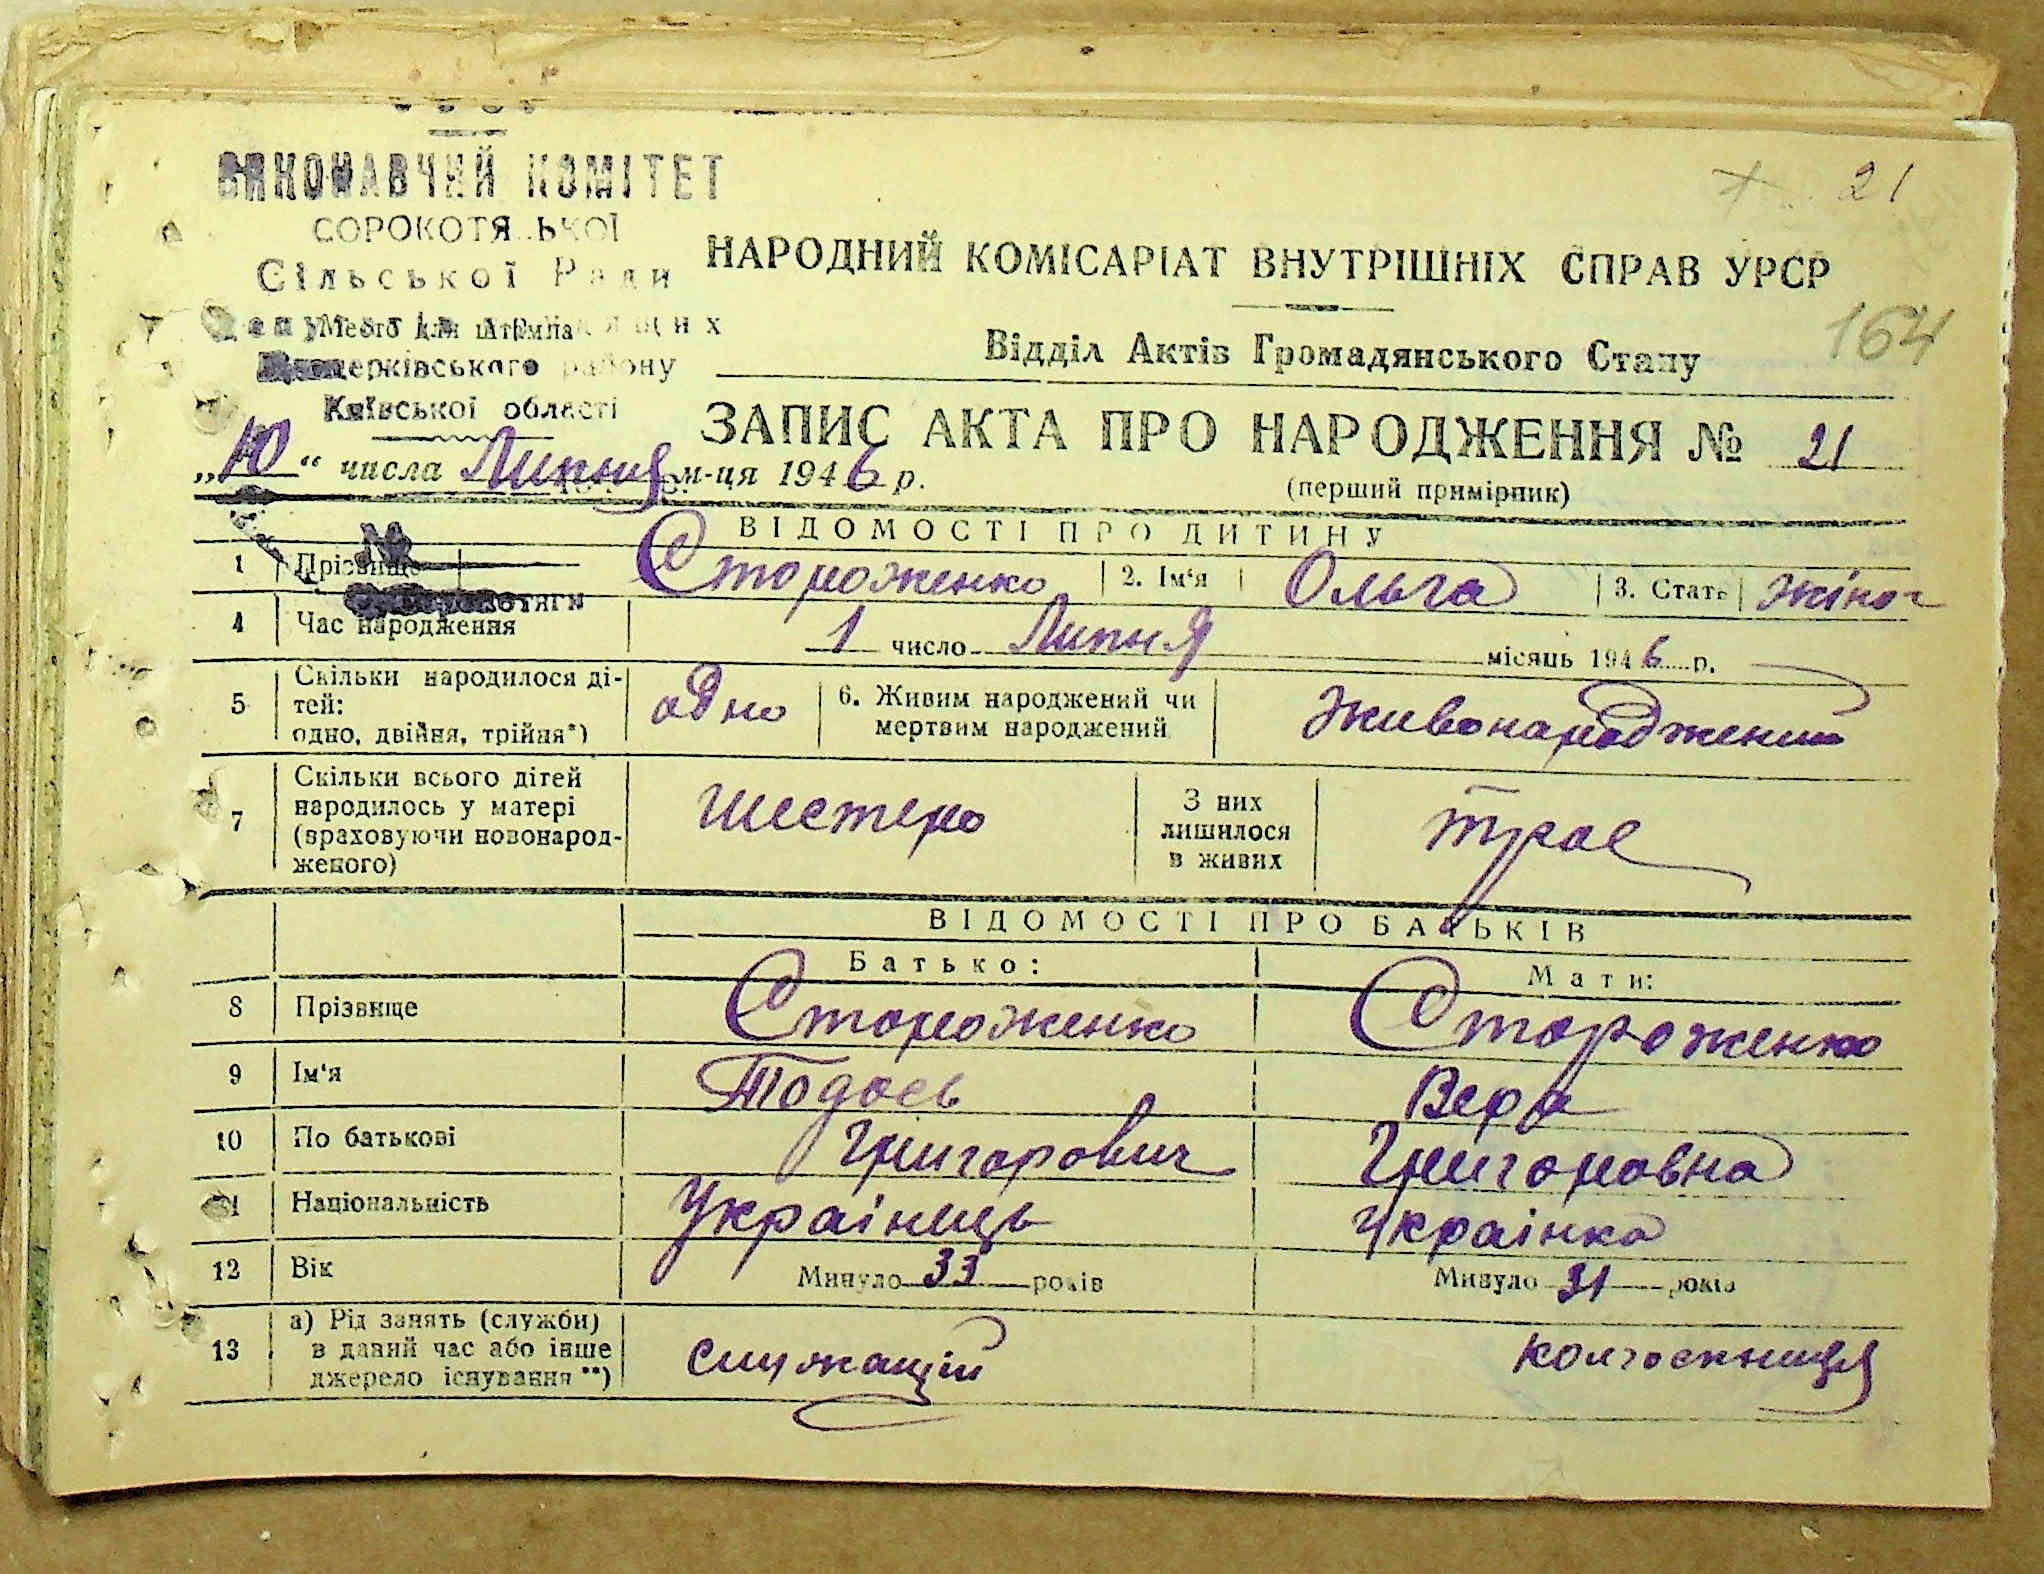 ВИКОНАВЧИЙ КОМІТЕТ
СОРОКОТЯ ЬКОЇ
Сільської Ради
Место для штампа
району
Київської області
21
164
НАРОДНИЙ КОМІСАРІАТ ВНУТРІШНІХ СПРАВ УРСР
Відділ Актів Громадянського Стану
ЗАПИС АКТА ПРО НАРОДЖЕННЯ № 21
„10“ числа Липня м-ця 1946 р.
(перший примірник)
ВІДОМОСТІ ПРО ДИТИНУ
1 Прізвище Стороженко 2. Ім'я Ольга 3. Стать жіноч
4 Час народження 1 число Липня місяць 1946 р.
5 Скільки народилося ді-
тей:
одно, двійня, трійня*) одно 6. Живим народжений чи
мертвим народжений живонароджений
7 Скільки всього дітей
народилось у матері
(враховуючи новонарод-
женого) шестеро З них
лишилося
в живих троє
ВІДОМОСТІ ПРО БАТЬКІВ
Батько: Мати:
8 Прізвище Стороженко Стороженко
9 Ім'я Тодось Вера
10 По батькові Григорович Григоровна
11 Національність Українець Українка
12 Вік Минуло 33 років Минуло 31 років
13 а) Рід занять (служби)
в даний час або інше
джерело існування **) служащій колгоспниця